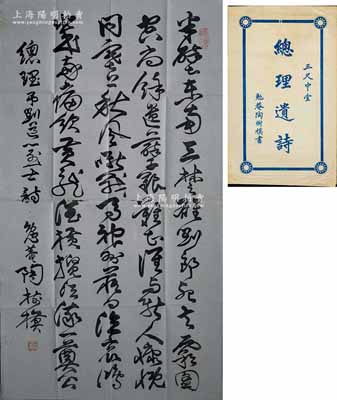 上海陽明拍賣
半壁東南三楚雄劉郎死去霸圖
空尚餘遺業艱難甚誰與斯人慷慨
同塞上秋風悲戰馬神州落日泣哀鴻
幾時痛飲黃龍酒橫攬江流一奠公
總理弔劉道一烈士詩 勉菴陶樹模
三尺中堂
總理遺詩
勉菴陶樹模書